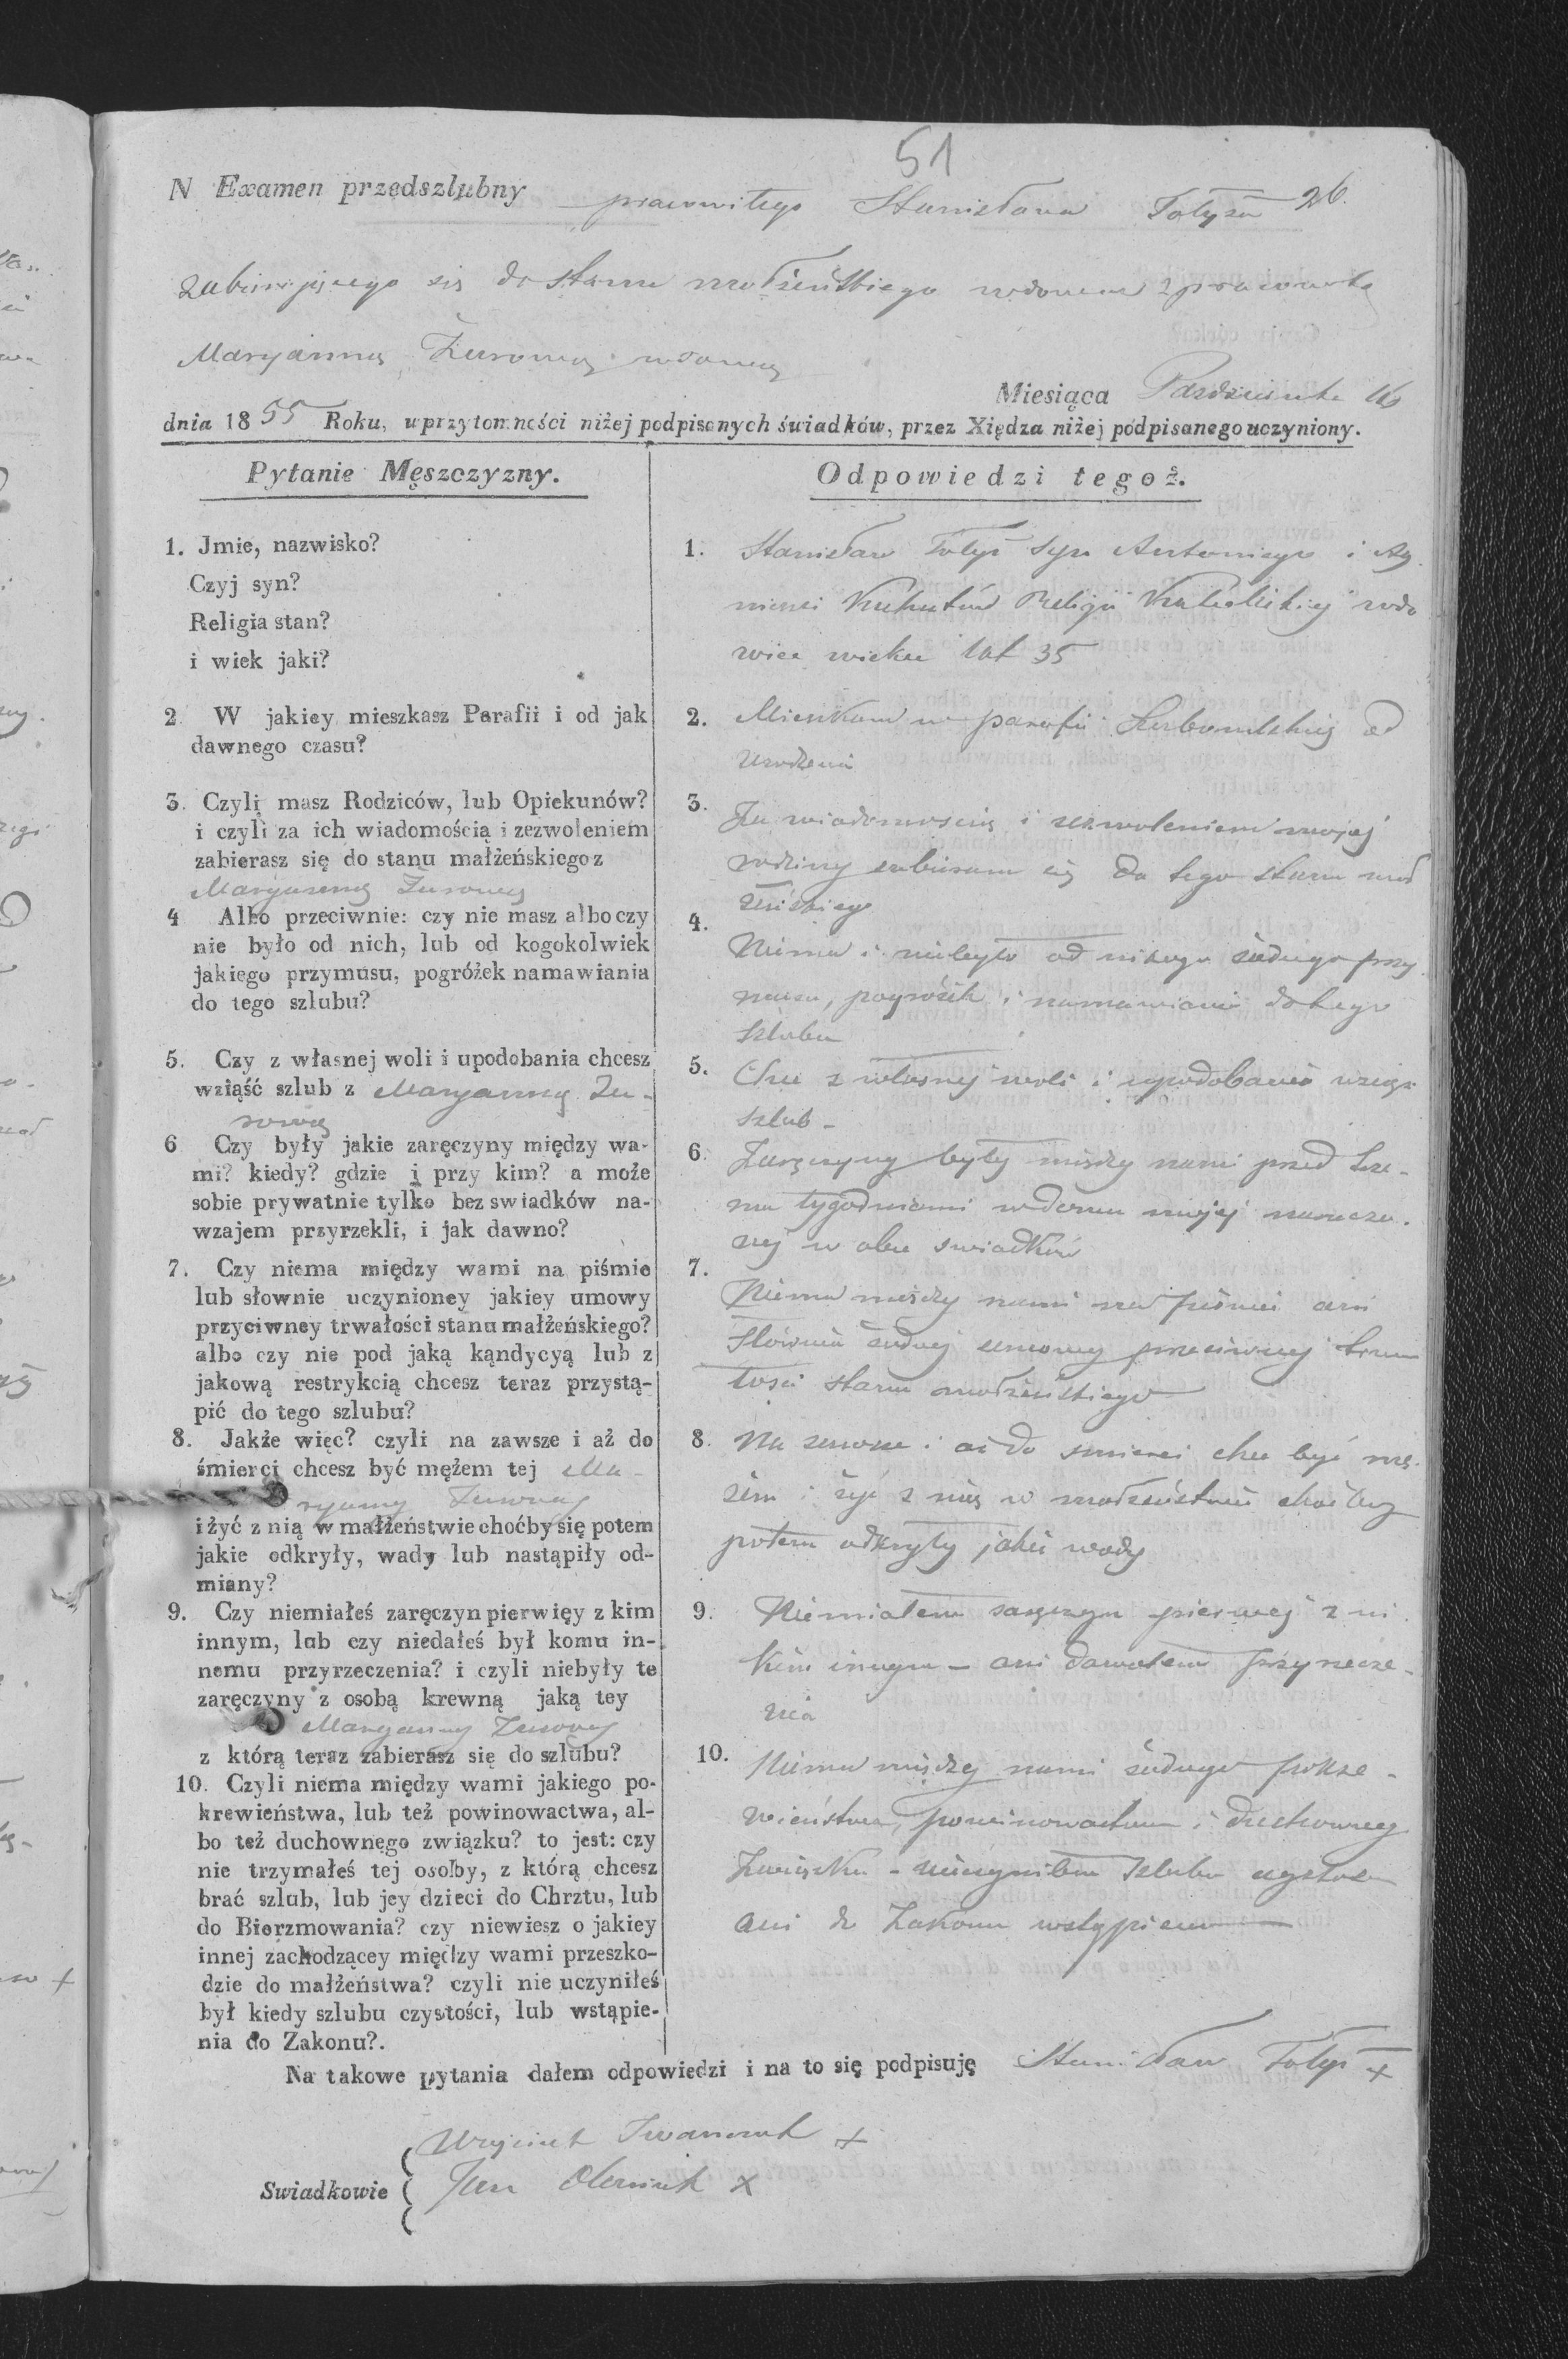 51
N Examen przedszlubny pracowitego Stanisława Tołysza 26.
zabierającego się do stanu małżeńskiego wdowca z pracowitą
Maryanną Żurową wdową
Miesiąca Pazdziernika 16
dnia 1855 Roku, w przytomności niżej podpisanych świadków, przez Xiędza niżej podpisanego uczyniony.
Pytanie Męszczyzny.
1. Jmie, nazwisko?
Czyj syn?
Religia stan?
i wiek jaki?
2 W jakiey mieszkasz Parafii i od jak
dawnego czasu?
3. Czyli masz Rodziców, lub Opiekunów?
i czyli za ich wiadomością i zezwoleniem
zabierasz się do stanu małżeńskiego z
Maryanną Żurową
4 Albo przeciwnie: czy nie masz albo czy
nie było od nich, lub od kogokolwiek
jakiego przymusu, pogróżek namawiania
do tego szlubu?
5. Czy z własnej woli i upodobania chcesz
wziąść szlub z Maryanną Żu-
rową
6 Czy były jakie zaręczyny między wa-
mi? kiedy? gdzie i przy kim? a może
sobie prywatnie tylko bez swiadków na-
wzajem przyrzekli, i jak dawno?
7. Czy niema między wami na piśmie
lub słownie uczynioney jakiey umowy
przyciwney trwałości stanu małżeńskiego?
albo czy nie pod jaką kąndycyą lub z
jakową restrykcią chcesz teraz przystą-
pić do tego szlubu?
8. Jakże więc? czyli na zawsze i aż do
śmierci chcesz być mężem tej Ma-
ryanny Żurowey
i żyć z nią w małżeństwie choćby się potem
jakie odkryły, wady lub nastąpiły od-
miany?
9. Czy niemiałeś zaręczyn pierwięy z kim
innym, lub czy niedałeś był komu in-
nemu przyrzeczenia? i czyli niebyły te
zaręczyny z osobą krewną jaką tey
Maryanny Żurowy
z którą teraz zabierasz się do szlubu?
10. Czyli niema między wami jakiego po-
krewieństwa, lub też powinowactwa, al-
bo też duchownego związku? to jest: czy
nie trzymałeś tej osoby, z którą chcesz
brać szlub, lub jey dzieci do Chrztu, lub
do Bierzmowania? czy niewiesz o jakiey
innej zachodzącey między wami przeszko-
dzie do małżeństwa? czyli nie uczyniłeś
był kiedy szlubu czystości, lub wstąpie-
nia do Zakonu?.
Odpowiedzi tegoż.
1. Stanisław Tołysz syn Antoniego i Ag
nieszki Religii Katolickiej wdo
wiec wieku lat 35
2. Mieszkam w parafii od
urodzenia
3. Za wiadomoscią i zezwoleniem mojej
rodziny zabieram się do tego stanu mał
żeńskiego
4. Niema i niebyło od nikogo żadnego przy
musu, pogróżek i namawiania do tego
szlubu
5. Chcę z własnej woli i upodobania wziąść
szlub -
6. Zaręczyny były między nami przed trze-
ma tygodniami w domu mojej narzeczo-
nej w obec swiadków
7. Niema między nami na piśmie ani
słownie żadnej umowy przeciwnej trwa
łości stanu małżeńskiego
8. Na zawsze i aż do smierci chcę być mę-
żem i żyć z nią w małżeństwie choćby
potem odkryły jakie wady
9. Niemiałem zaręczyn pierwej z ni
kim innym - ani dawałem przyrzecze-
nia
10. Niema między nami żadnego pokre-
wieństwa, powinowactwa i duchownego
Związku - nieuczyniłem szlubu czystości
ani do Zakonu wstąpienia
Na takowe pytania dałem odpowiedzi i na to się podpisuję Stanisław Tołysz x
Wojciech Iwaniuk x
Swiadkowie Jan Oleniuk x